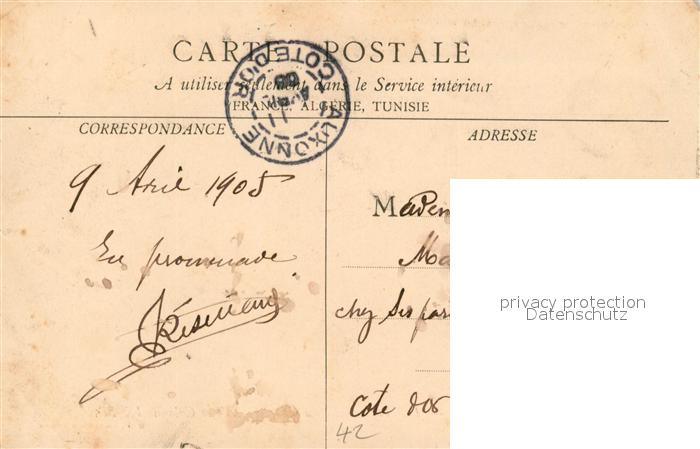 CARTE POSTALE
A utiliser seulement dans le Service intérieur
(FRANCE, ALGÉRIE, TUNISIE
AUXONNE
COTE D'OR
11
AVRIL
05
CORRESPONDANCE
ADRESSE
9 Avril 1905
En promenade
Madem
Ma
chez ses par
Cote d'or
42
privacy protection
Datenschutz